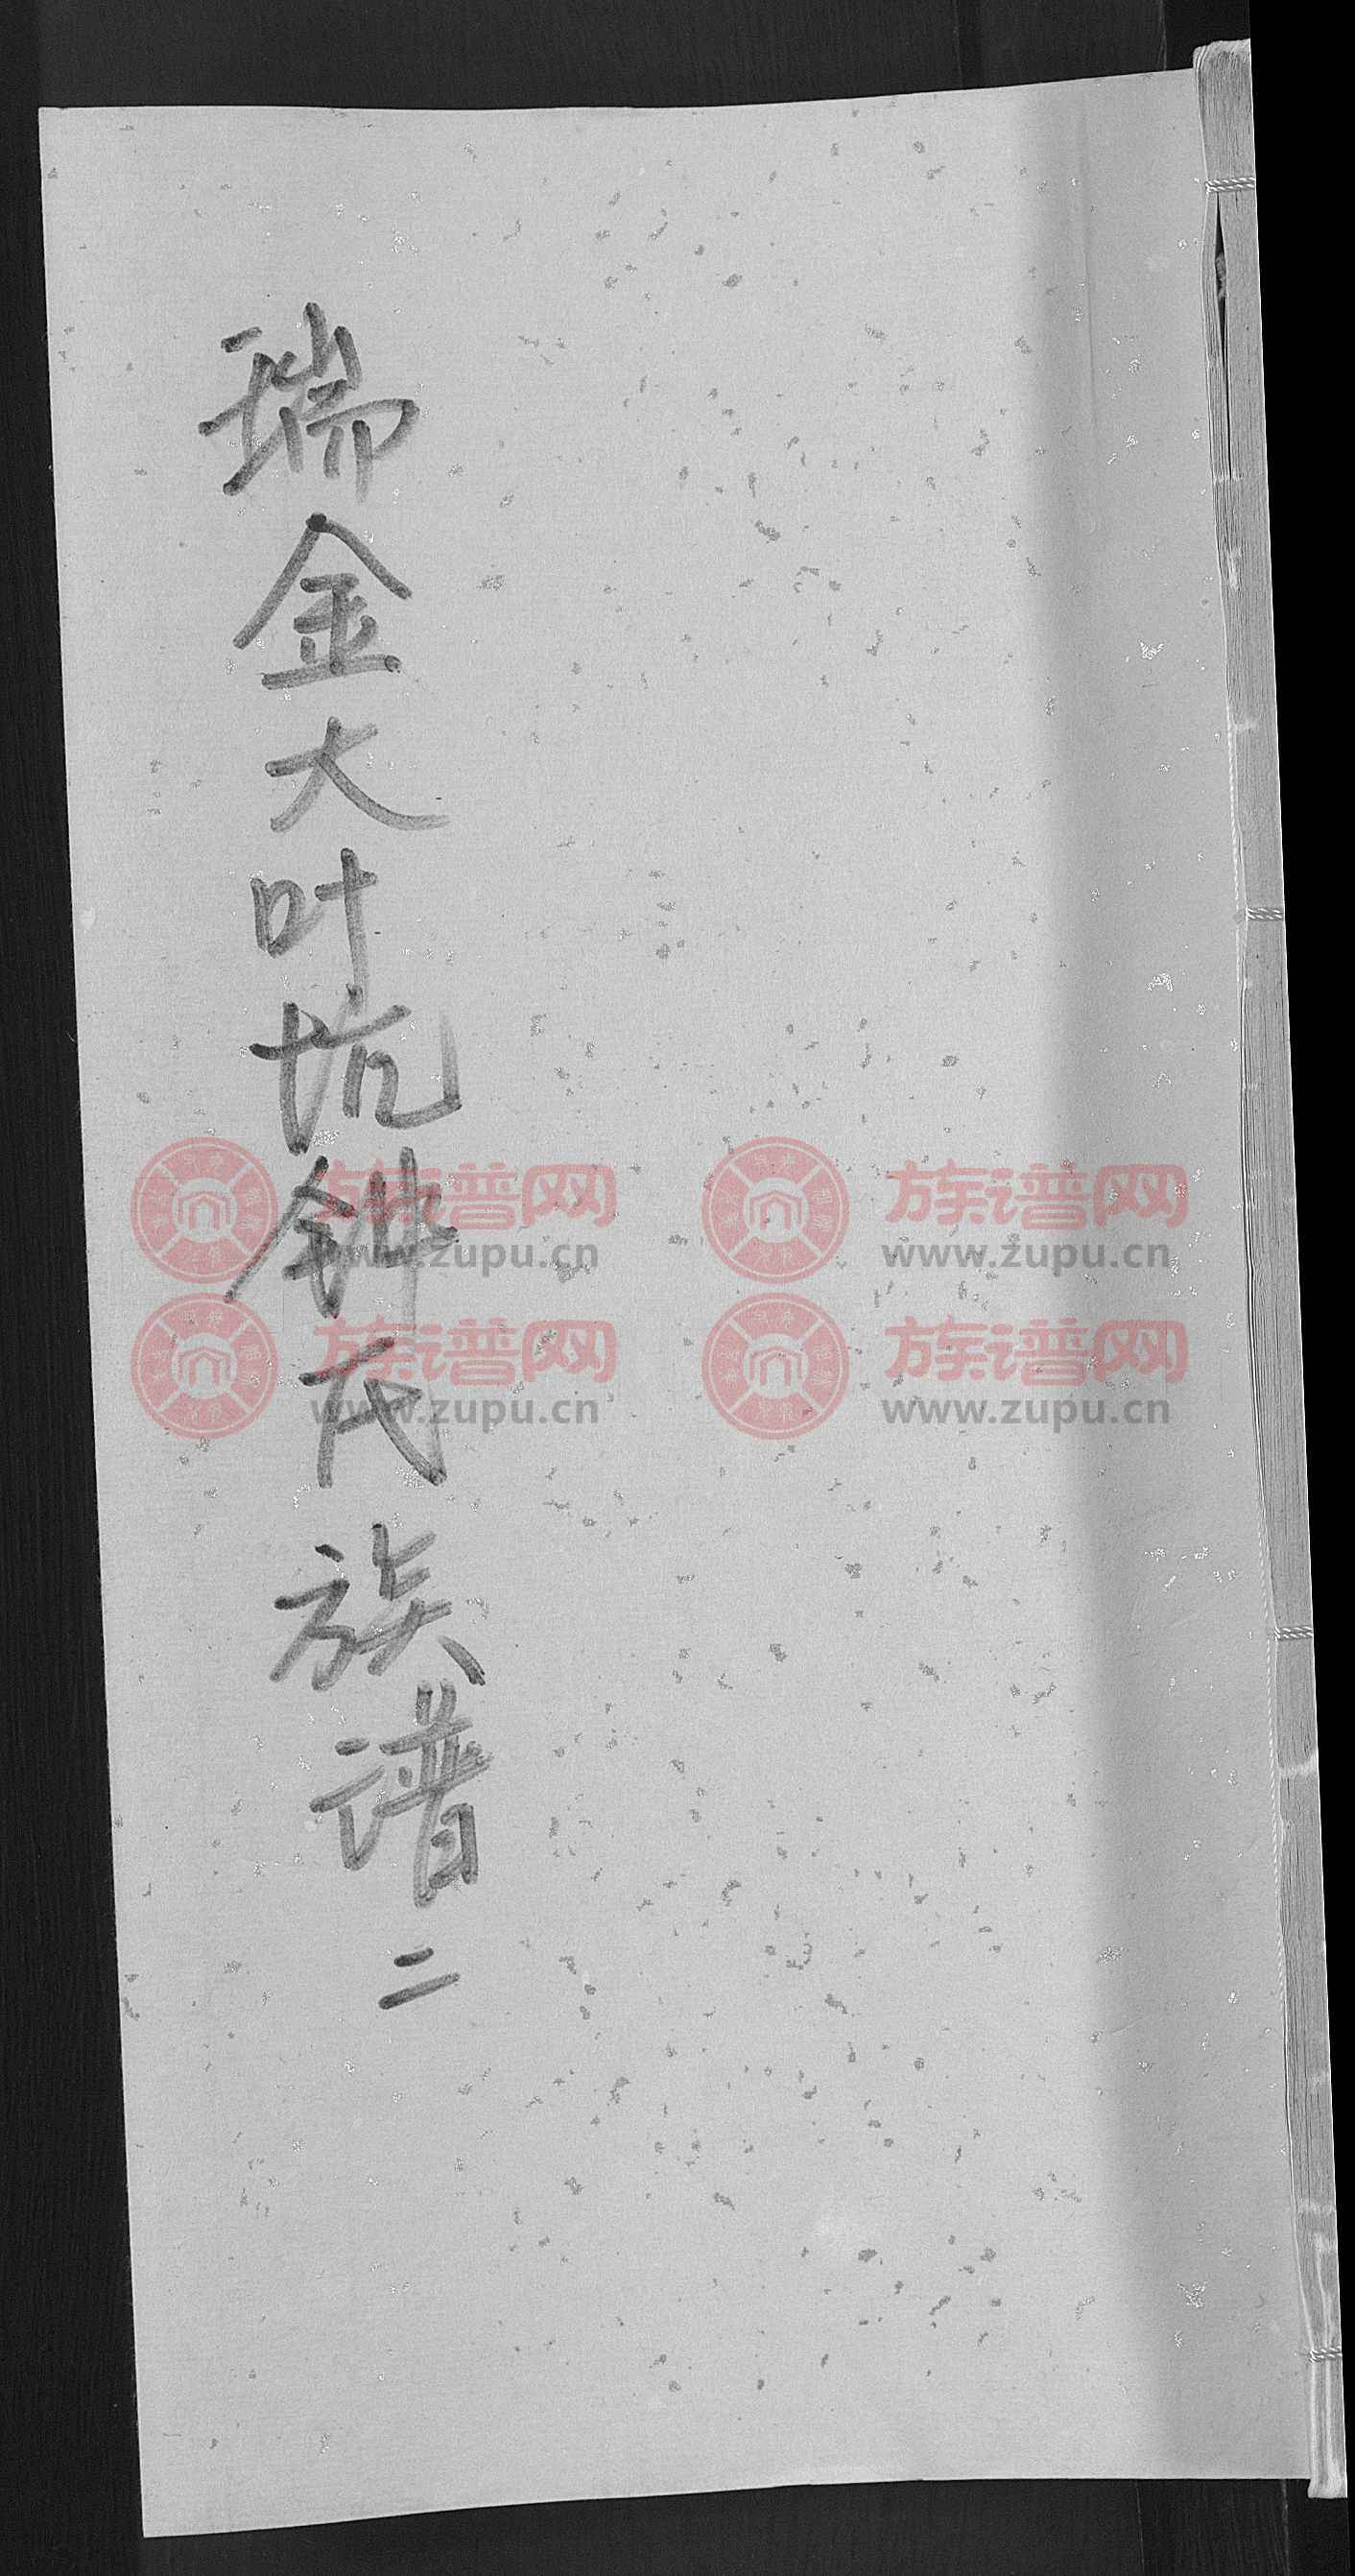 瑞金大叶坑钟氏族谱二
族谱网 www.zupu.cn
族谱网 www.zupu.cn
族谱网 www.zupu.cn
族谱网 www.zupu.cn